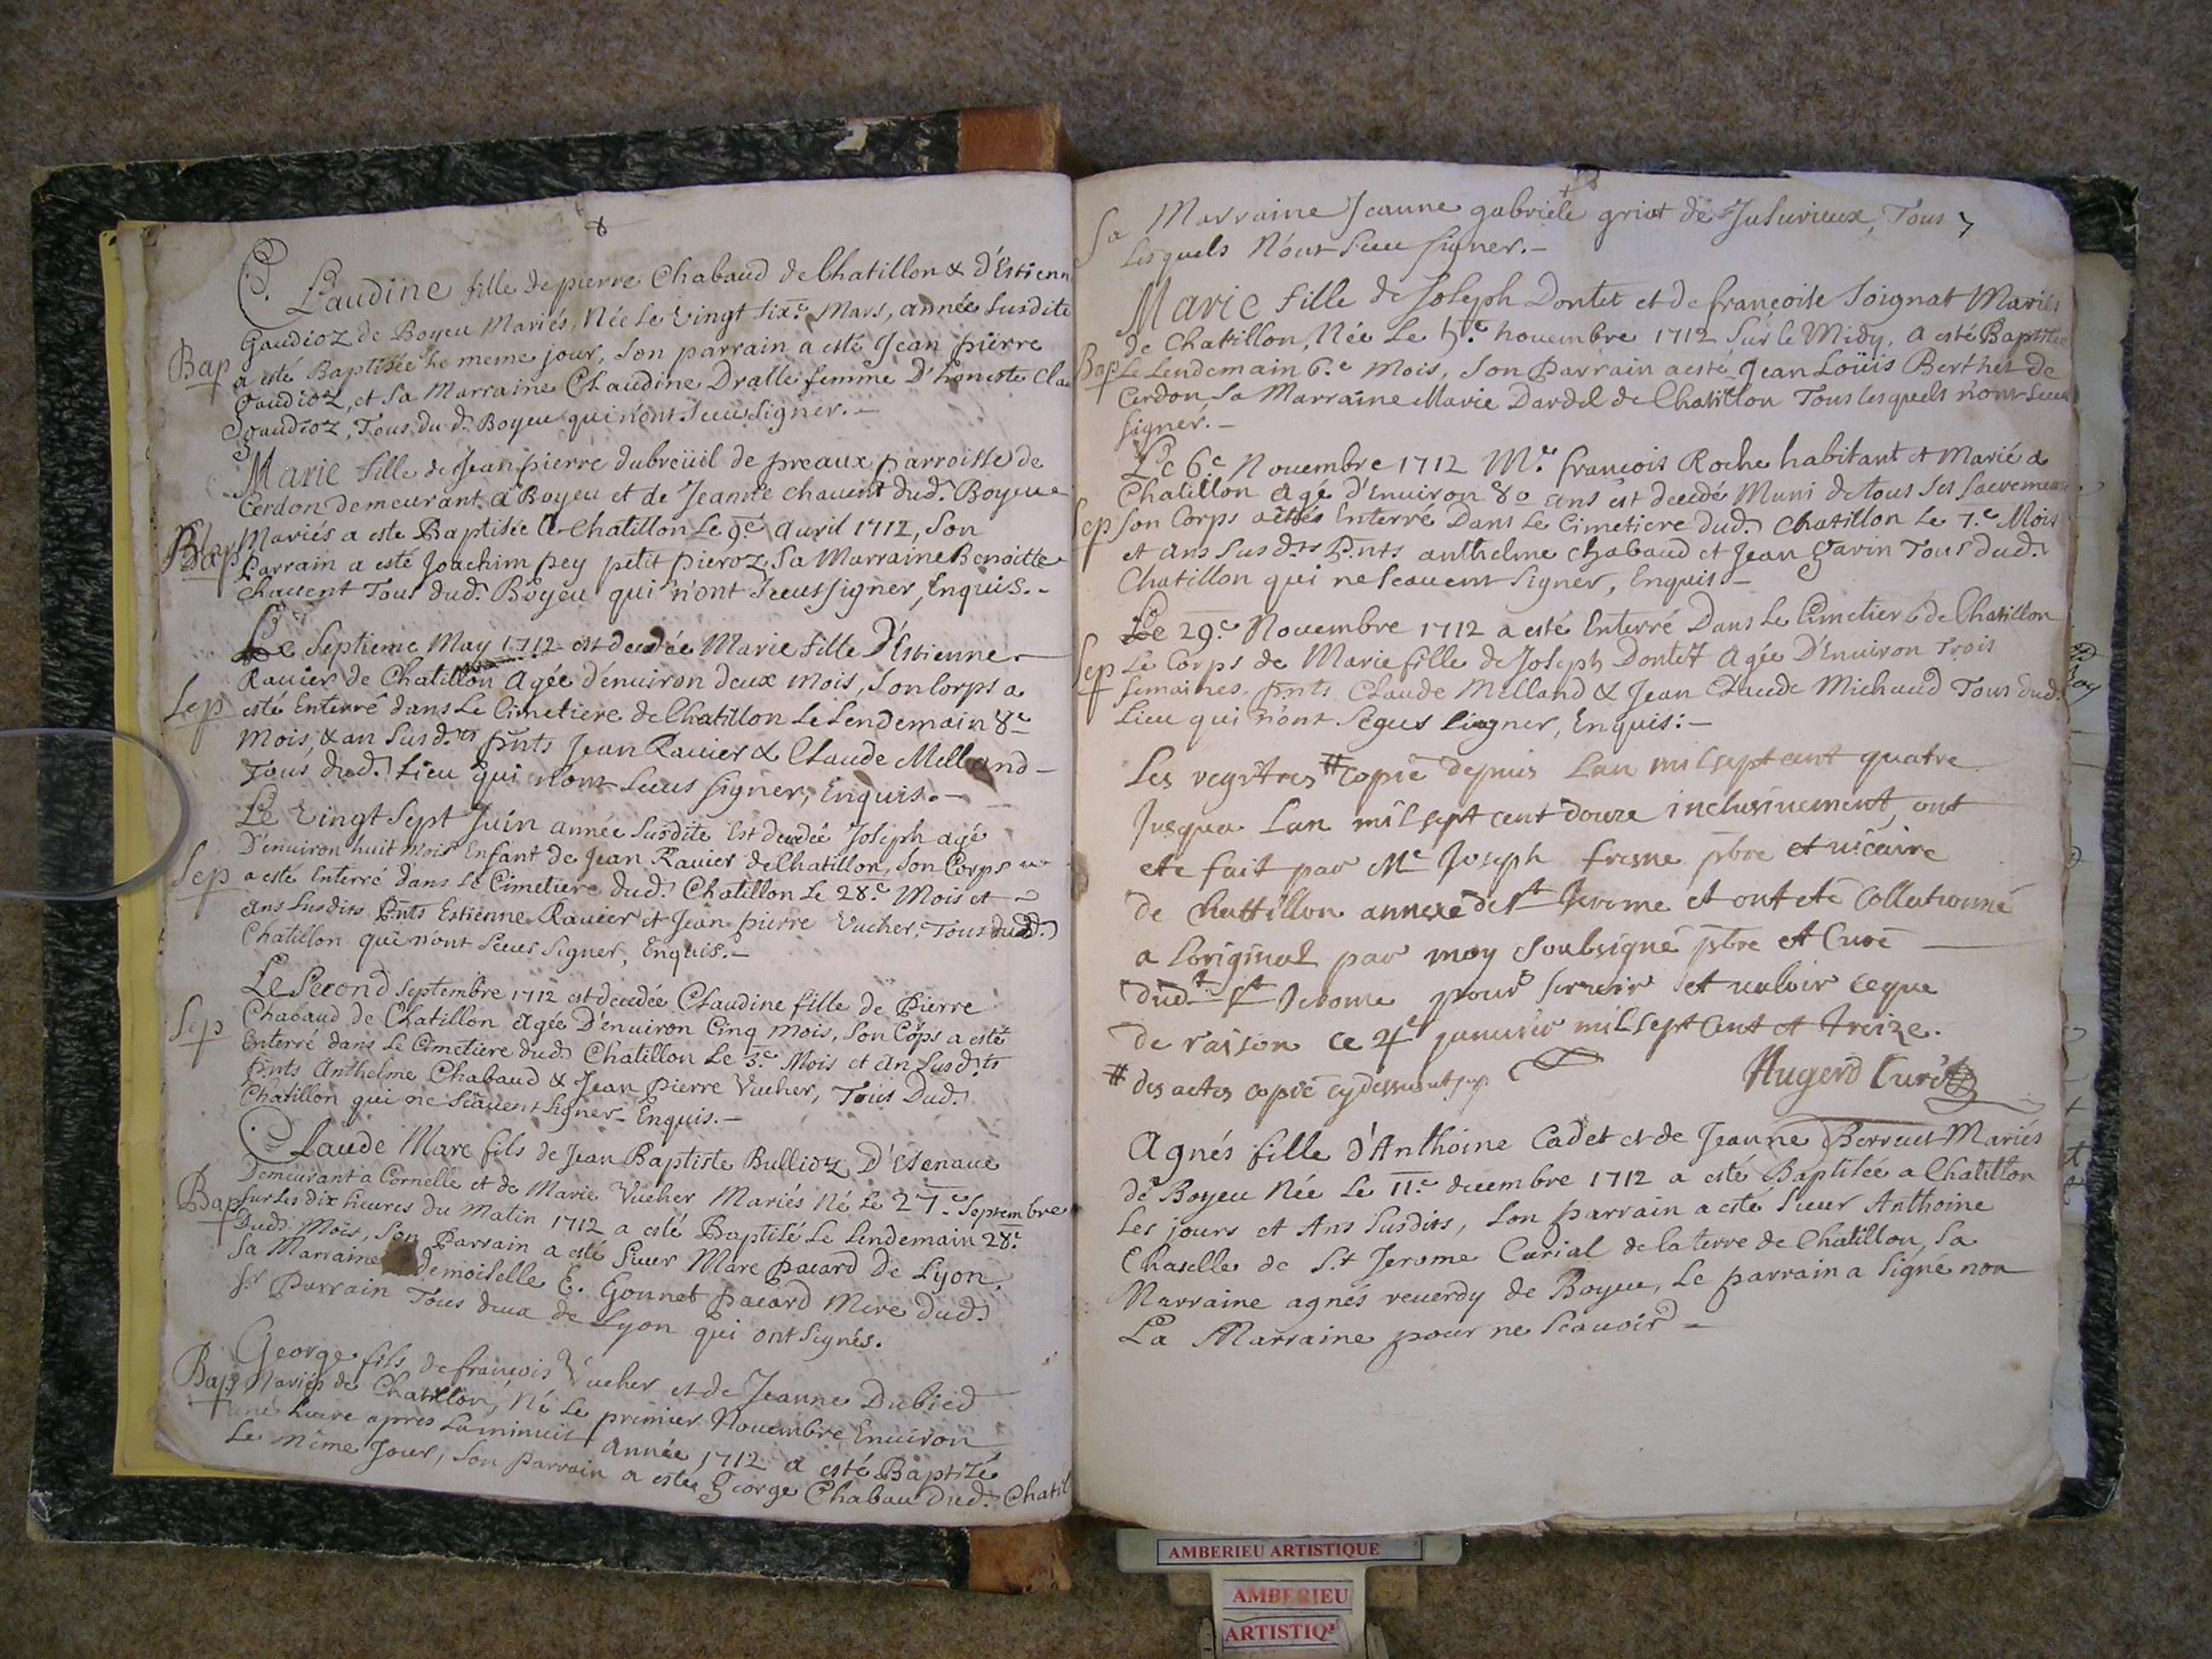 Claudine fille de pierre Chabaud de Chatillon & d'Estienn
Gaudioz de Boyeu Mariés, Née Le Vingt Six.e Mars, année Susdite
Bap a esté Baptisée Le meme jour, Son parrain a esté Jean pierre
Gaudioz, et Sa Marraine Claudine Dralle femme D'honeste Cla
Gaudioz, Tous du d. Boyeu qui n'ont Sceu Signer. -
Marie fille de Jean pierre dubreüil de preaux parroisse de
Cerdon demeurant a Boyeu et de Jeanne chauent dud. Boyeu
Bap Mariés a este Baptisée a Chatillon Le 9.e Auril 1712, Son
Parrain a esté Joachim pey petit pieroz, Sa Marraine Benoitte
Chauent Tous dud. Boyeu qui n'ont Sceus signer, Enquis. -
Le Septieme May 1712 est decedée Marie fille D'Estienne
Rauier de Chatillon Agée d'enuiron deux mois, Son Corps a
Sep esté Enterré dans Le Cimetiere de Chatillon Le Lendemain 8.e
Mois, & an Susd.ts pnts Jean Rauier & Claude Melland
Tous dud. Lieu qui n'ont Sceus signer, Enquis. -
Le Vingt Sept Juin année Susdite Est decedé Joseph agé
D'enuiron huit mois Enfant de Jean Rauier de Chatillon, Son Corps
Sep a esté Enterré dans Le Cimetiere dud. Chatillon Le 28.e Mois et
ans Susdits Pnts Estienne Rauier et Jean pierre Vucher, Tous dud.
Chatillon qui n'ont Sceus Signer, Enquis. -
Le Second Septembre 1712 est decedée Claudine fille de Pierre
Chabaud de Chatillon Agée D'enuiron Cinq mois, Son Cops a esté
Sep Enterré dans Le Cimetiere dud. Chatillon Le 3.e Mois et An Susd.ts
pnts Anthelme Chabaud & Jean Pierre Vucher, Tous Dud.
Chatillon qui ne Scauent Signer Enquis. -
Claude Marc fils de Jean Baptiste Bullioz D'Etenaue
Demeurant a Cornelle et de Marie Vucher Mariés Né Le 27.e Septembre
Bap Sur Les dix heures du Matin 1712 a esté Baptisé Le Lendemain 28.e
Dud. Mois, Son Parrain a esté Sieur Marc pacard De Lyon,
Sa Marraine demoiselle E. Gonnet pacard Mere dud.
Sr Parrain Tous deux de Lyon qui ont Signés.
George fils de françois Vucher et de Jeanne Dubied
Bap Mariés de Chatillon, Né Le premier Nouembre Enuiron
une heure apres La minuit Année 1712 a esté Baptizé
Le même Jour, Son Parrain a este George Chabau Dud. Chatil
Sa Marraine Jeanne gabriele griot de Jusurieux, Tous 7
Lesquels N'ont Sceu signer. -
Marie fille de Joseph Dontet et de françoise Soignat Mariés
de Chatillon, Née Le 5.e nouembre 1712 Sur le Midy, a esté Baptisée
Bap Le Lendemain 6.e Mois, Son Parrain a esté Jean Loüis Berthet de
Cerdon Sa Marraine Marie Dardel de Chatillon Tous lesquels n'ont Sceu
signer. -
Le 6.e Nouembre 1712 M.e françois Roche habitant et Marié a
Chatillon Agé d'Enuiron 80 ans est decedé Muni de tous Ses Sacremens
Sep Son Corps a Estés Enterré Dans Le Cimetiere dud. Chatillon Le 7.e Mois
et Ans Susd.ts Pnts anthelme Chabaud et Jean Garin Tous dud.
Chatillon qui ne Scauent Signer, Enquis -
Le 29.e Nouembre 1712 a esté Enterré Dans Le Cimetiere de Chatillon
Sep Le Corps de Marie fille de Joseph Dontet Agée D'Enuiron Trois
Semaines. Pnts Claude Melland & Jean Claude Michaud Tous dud.
Lieu qui n'ont Sceus Signer, Enquis: -
Les regitres # copie depuis Lan mil sept cent quatre
Jusqua Lan mil sept cent douze inclusiuement, ont
ete fait par Me Joseph fresne pbre et uicaire
de Chattillon annexe de St Jerome et ont ete Collationné
a Loriginal par moy Soubsigné pbre et Curé
dudt St Jerome pour seruir et ualoir ceque
de raison ce 4e januier mil sept Cent et treize.
# des actes copie cy dessus
Augerd Curé
Agnés fille d'Anthoine Cadet et de Jeanne Berruet Mariés
de Boyeu Née Le 11.e decembre 1712 a esté Baptisée a Chatillon
Les jours et Ans Susdits, Son parrain a esté Sieur Anthoine
Chaselle de S.t Jerome Curial de la terre de Chatillon, Sa
Marraine agnés reuerdy de Boyeu, Le parrain a Signé non
La Marraine pour ne Scauoir -
AMBERIEU ARTISTIQUE
AMBERIEU
ARTISTIQ